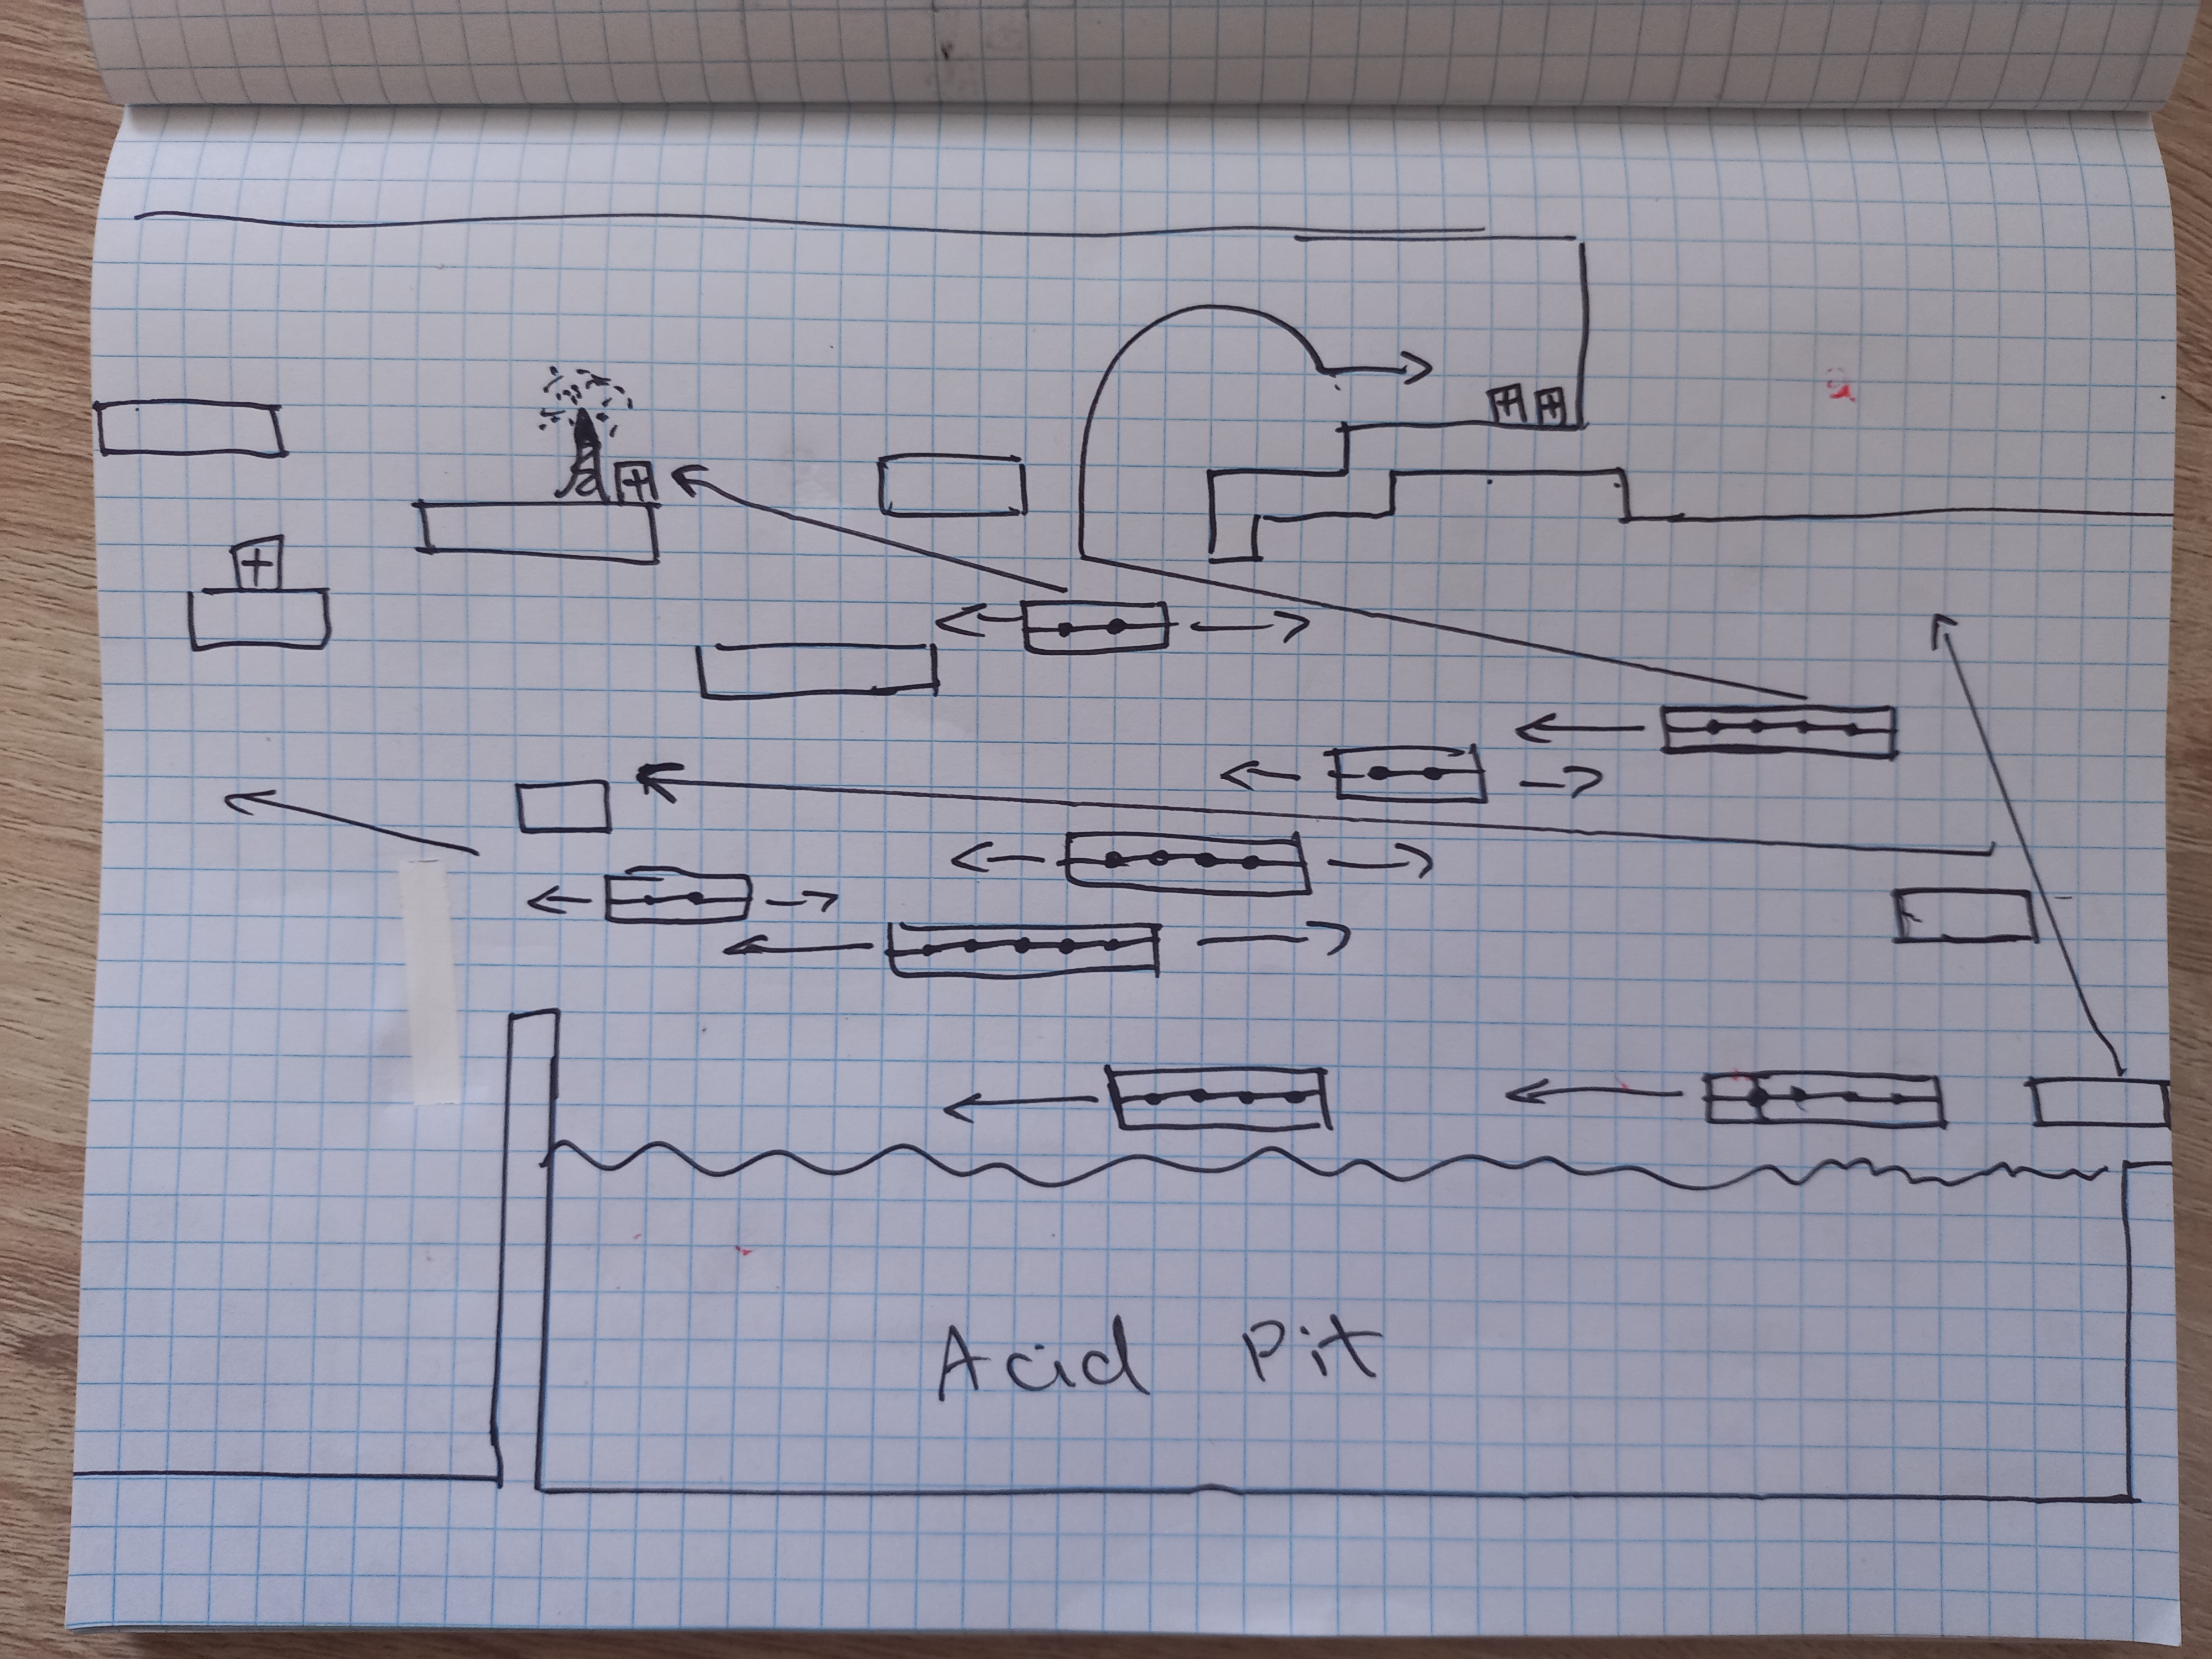 Acid Pit